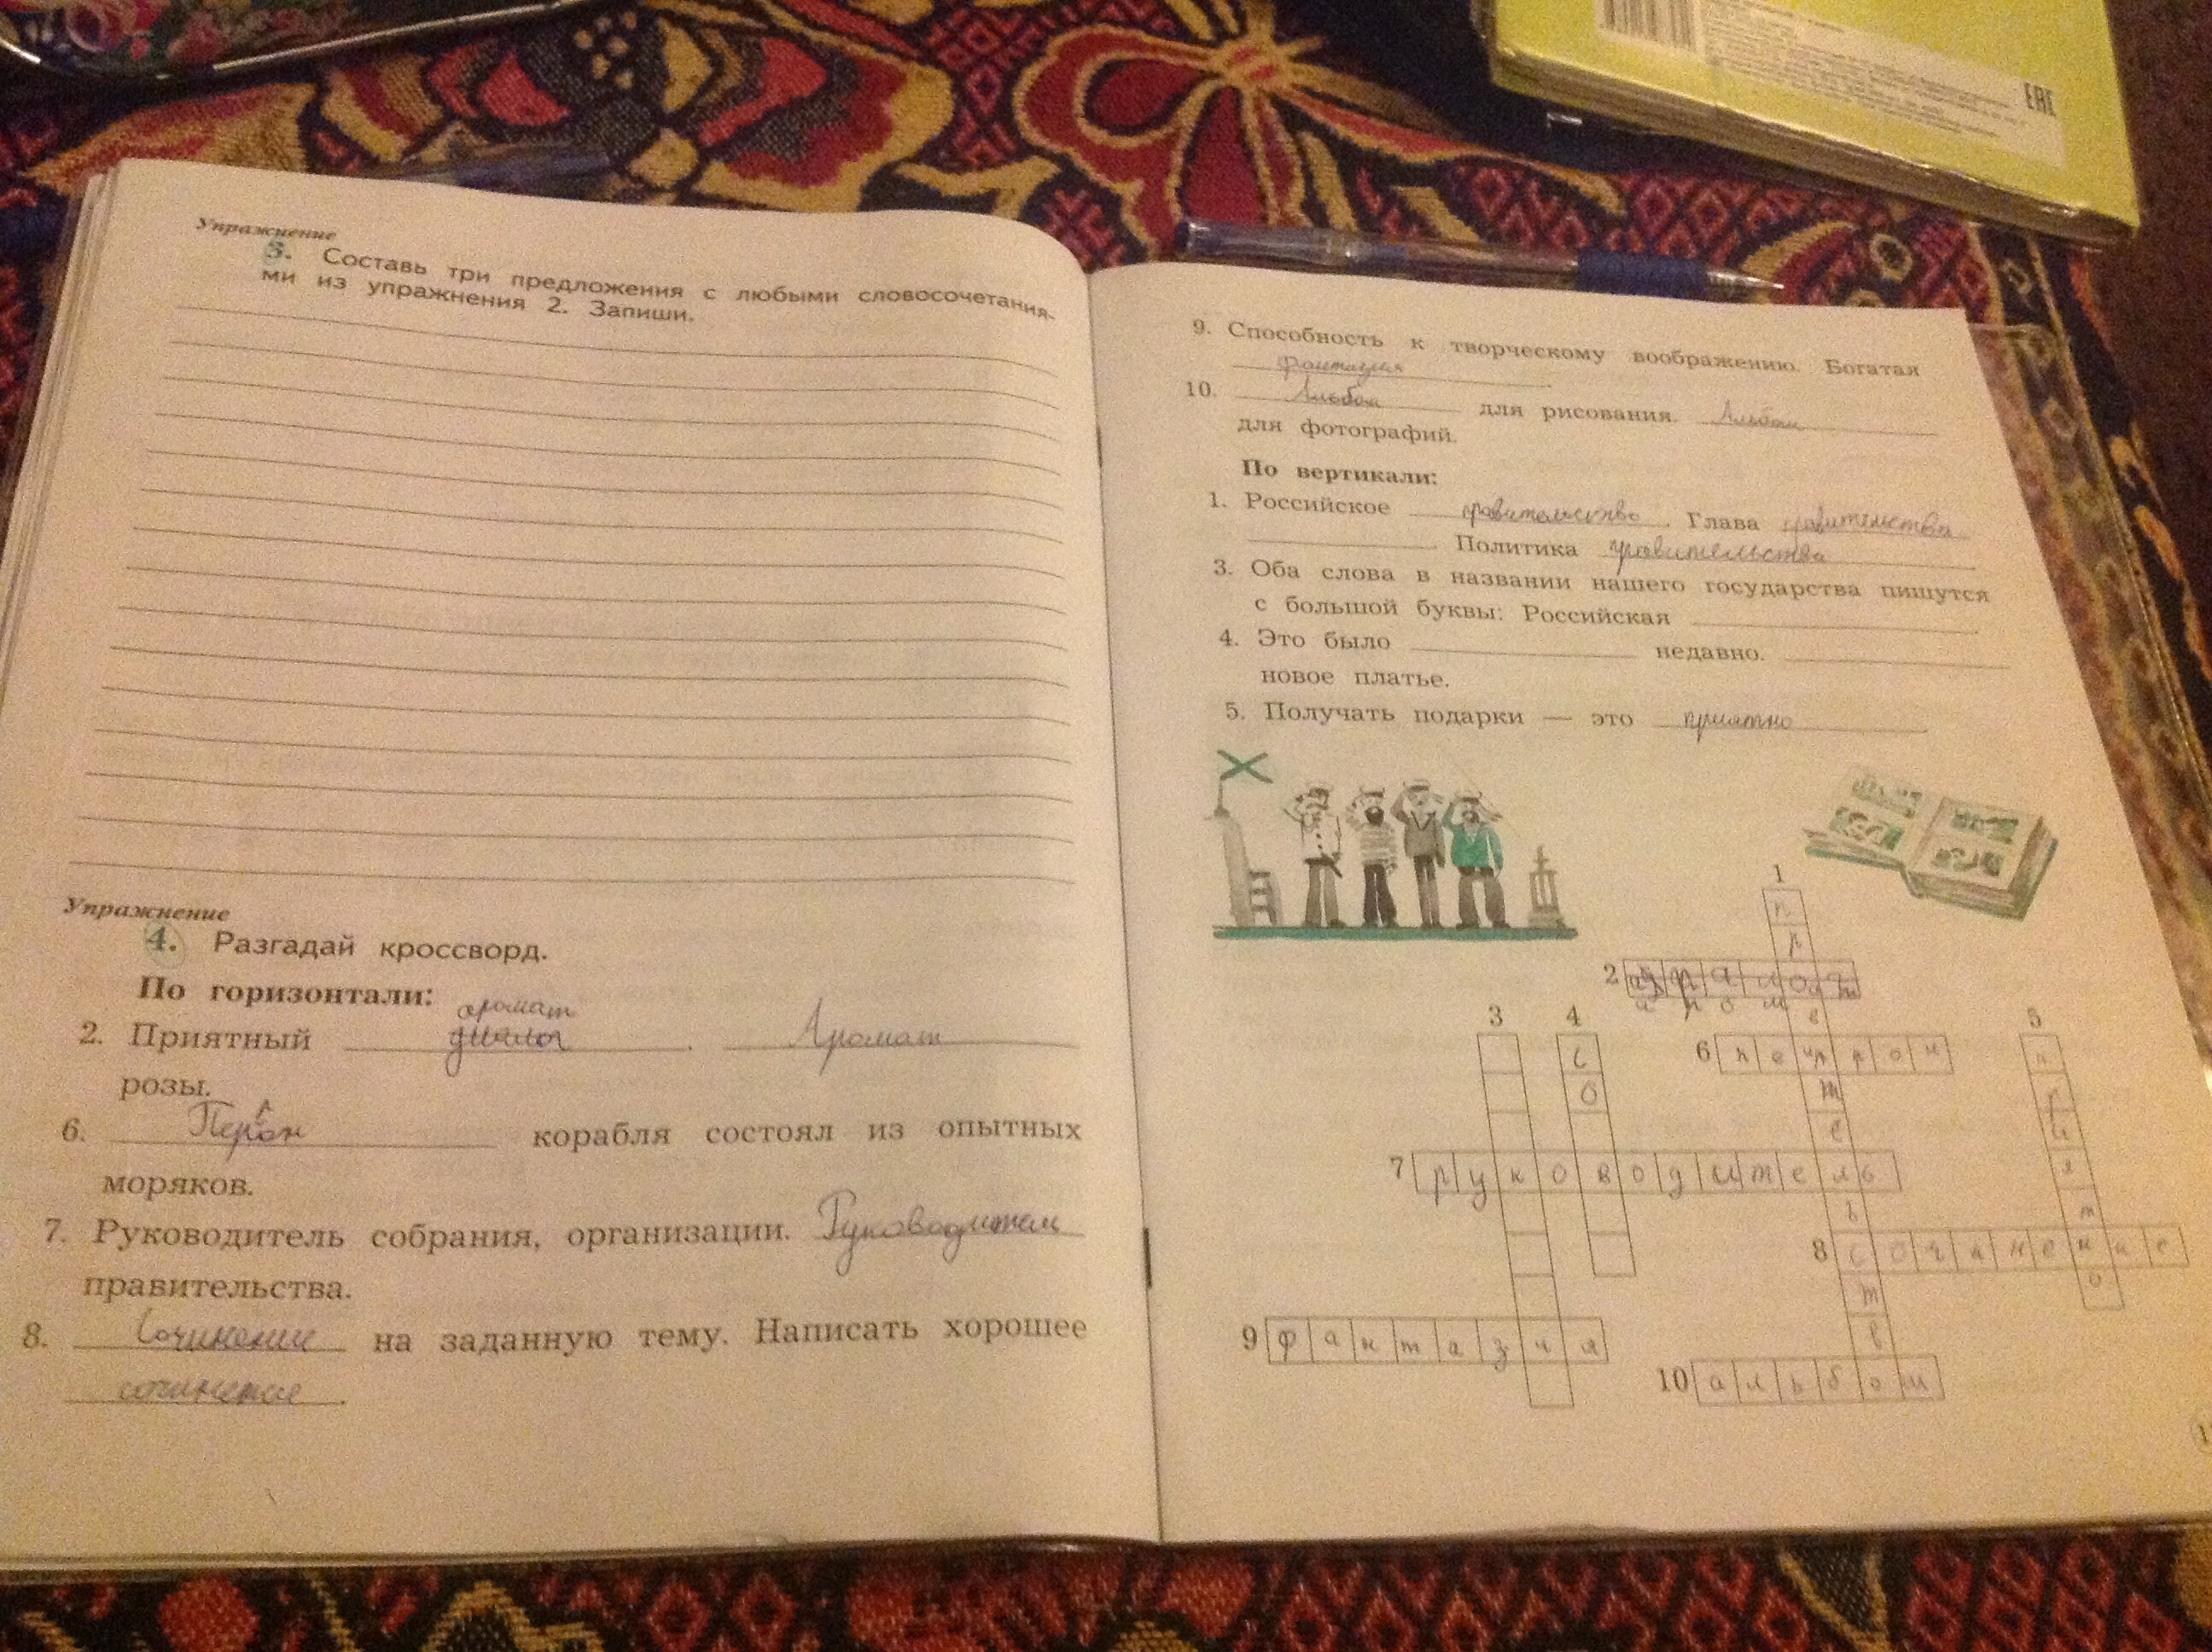 Упражнение
3. Составь три предложения с любыми словосочетания-
ми из упражнения 2. Запиши.
Упражнение
4. Разгадай кроссворд.
По горизонтали:
аромат
2. Приятный . Аромат
розы.
6. Перрон корабля состоял из опытных
моряков.
7. Руководитель собрания, организации. Руководители
правительства.
8. Сочинение на заданную тему. Написать хорошее
сочинение.
9. Способность к творческому воображению. Богатая
фантазия
10. Альбом для рисования. Альбом
для фотографий.
По вертикали:
1. Российское правительство. Глава правительства
. Политика правительства
3. Оба слова в названии нашего государства пишутся
с большой буквы: Российская .
4. Это было недавно.
новое платье.
5. Получать подарки — это приятно.
1
п
р
2
а р о м а т
3 4 в 5
6
с п
о т р
е и
7 р у к о в о д и т е л ь я
ь т
8 с о ч и н е н и е
т о
в
9 ф а н т а з и я
10 а л ь б о м
EAC